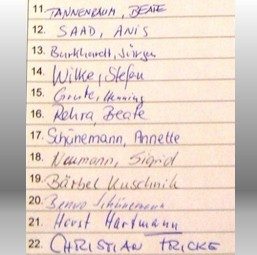 11. TANNENBAUM, BEATE
12. SAAD, ANIS
13. Burkhardt, Jürgen
14. Wilke, Stefan
15. Grote, Henning
16. Rehra, Beate
17. Schünemann, Annette
18. Neumann, Sigrid
19. Bärbel Kuschnik
20. Benno Schünemann
21. Horst Hartmann
22. CHRISTIAN FRICKE